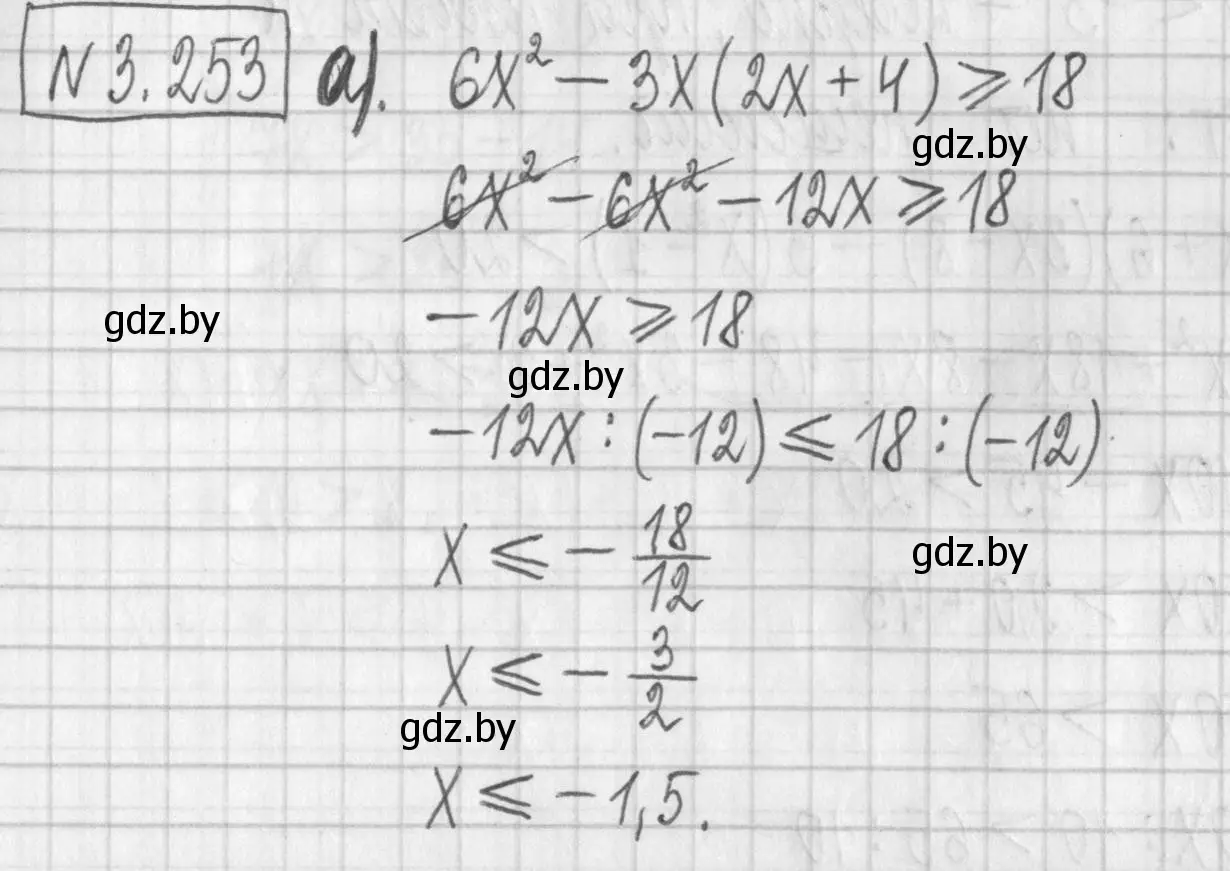 N 3.253 а). 6x² − 3x(2x + 4) ⩾ 18
gdz.by
6x² − 6x² − 12x ⩾ 18
gdz.by
−12x ⩾ 18
gdz.by
−12x : (−12) ⩽ 18 : (−12)
x ⩽ − 18/12
gdz.by
x ⩽ − 3/2
gdz.by
x ⩽ −1,5.